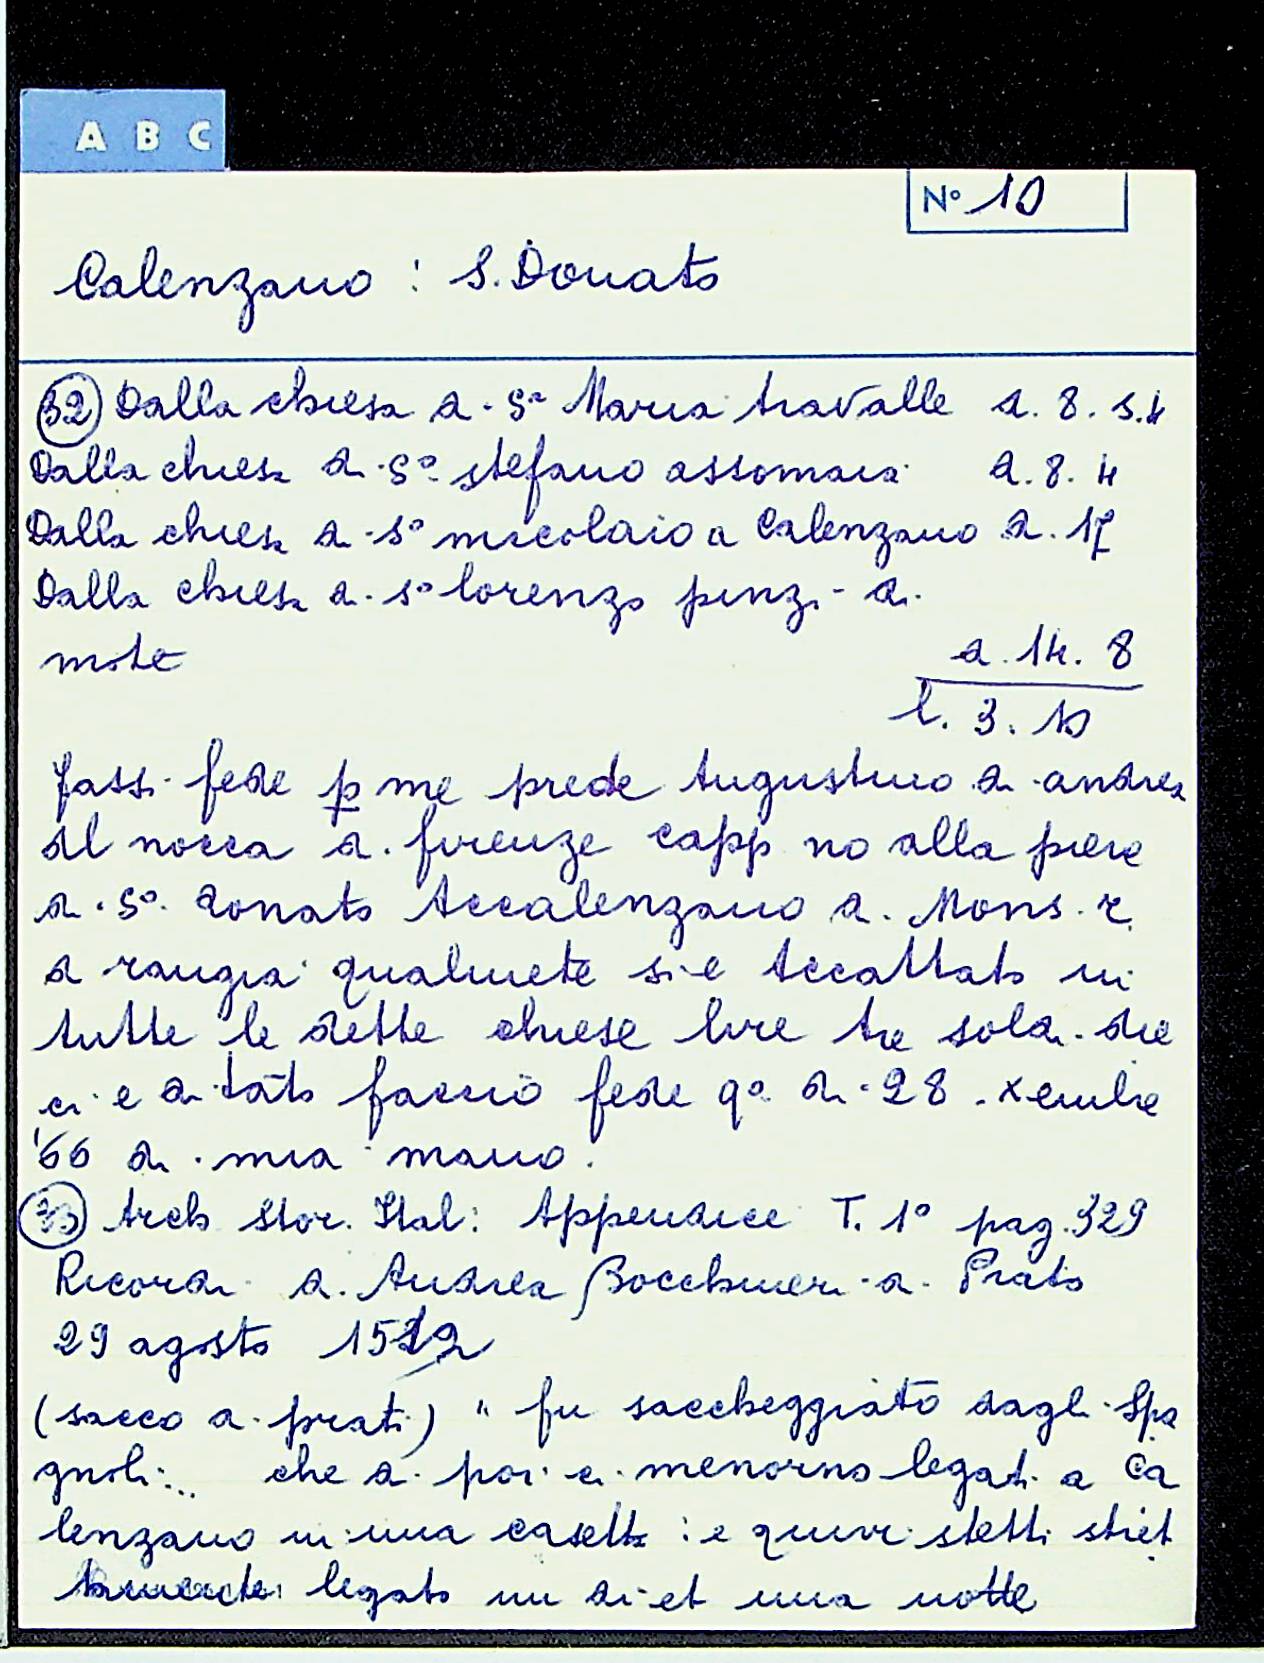 A B C
N° 10
Calenzano : S. Donato
(32) Dalla chiesa di S.ª Maria travalle d. 8. s. 4
Dalla chiesa di S.º stefano assomaia d. 8. 4
Dalla chiesa di s.º niccolaio a Calenzano d. 17
Dalla chiesa di s.º lorenzo pinzi- di
mote d. 14. 8
l. 3. 10
fassi fede p me prede Augustino di andrea
del nocca di firenze capp no alla pieve
di S.º donato Accalenzano di Mons. r.
d rangia qualmete si e Accattato in
tutte le dette chiese lire tre soldi die
ci e di tāto faccio fede q.º di 28. xembre
'66 di mia mano.
(33) Arch Stor. Ital: Appendice T. 1° pag. 329
Ricordi di Andrea Bocchineri da Prato
29 agosto 1512
(sacco di prato) " fu saccheggiato dagli Spa
gnoli:.. che di poi ci menorno legati a Ca
lenzano in una casetta : e quivi stetti stret
tamente legato un di et una notte